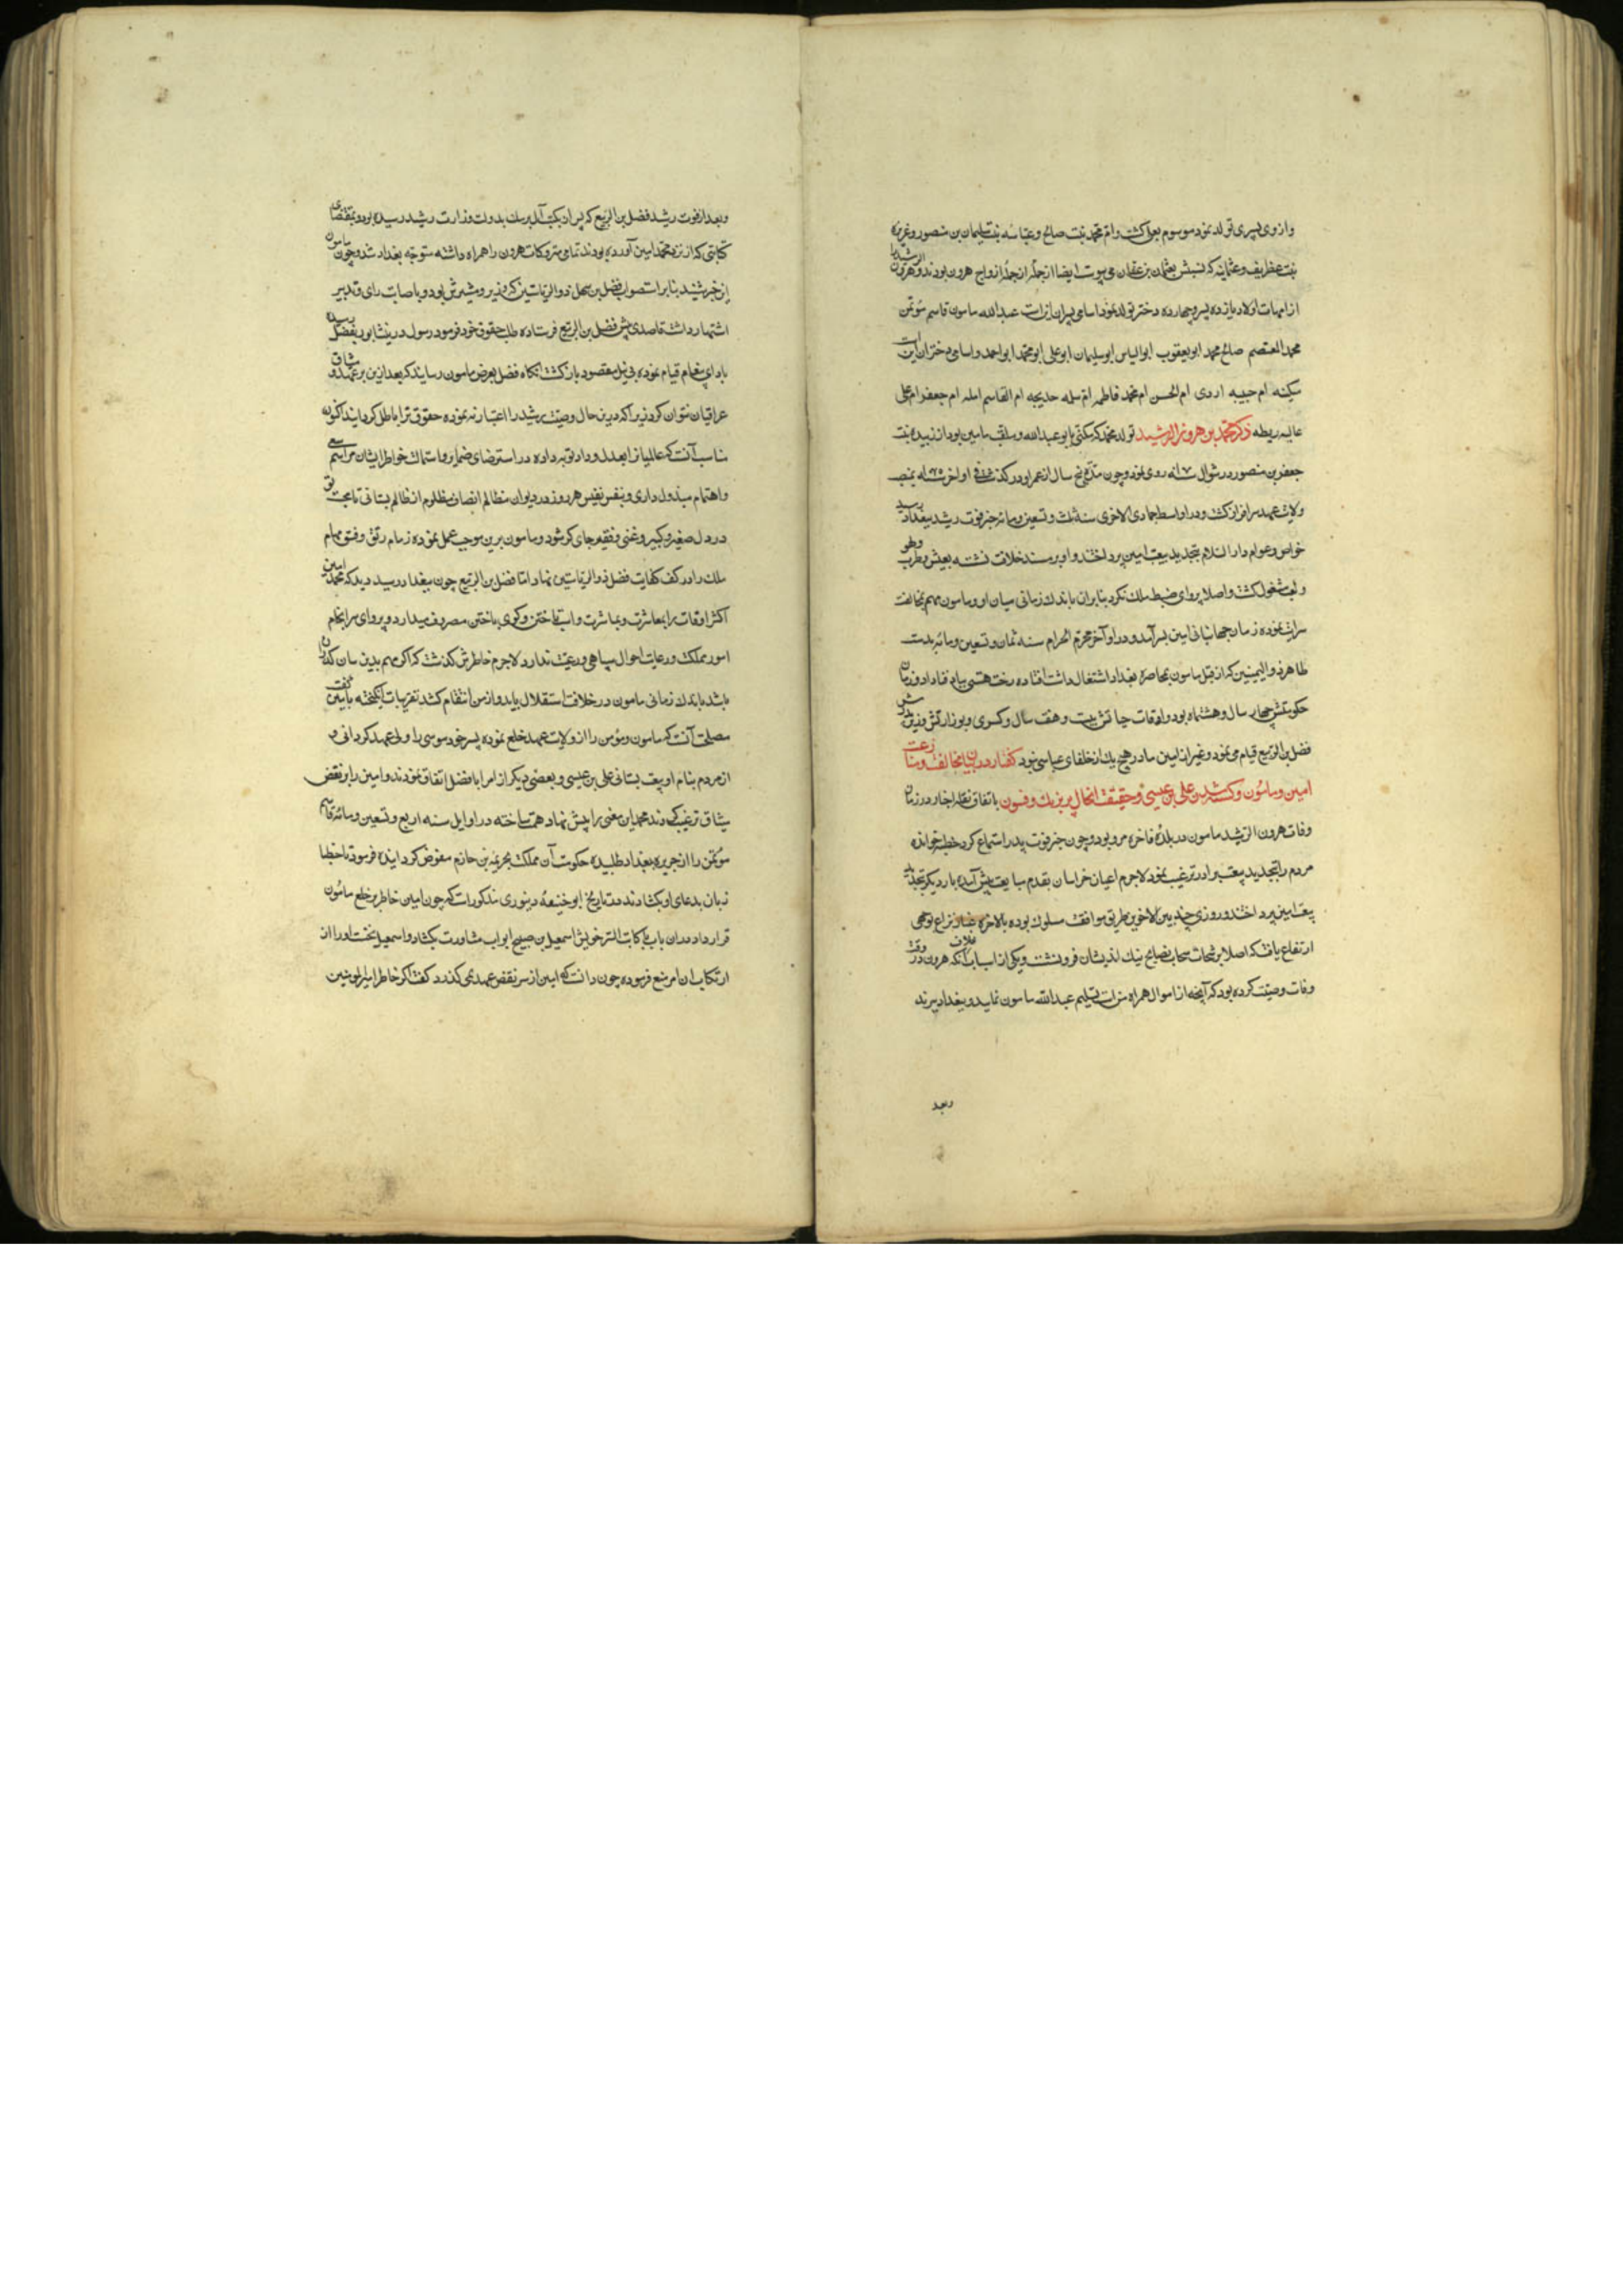 وازوی پسری تولد نمود موسوم بعلی کشت وام محمد بنت صالح وعباسه بنت سلیمان بن منصور وعزیزه
بنت غطریف وعثمانیه که نسبش بعثمان بن عفان می پیوست ایضا از جمله ازواج هرون بودند وهرون الرشید را
از امهات اولاد یازده پسر وچهارده دختر تولد نمود اسامی پسران اینست عبدالله مامون قاسم مؤتمن
محمد المعتصم صالح محمد ابویعقوب ابوالعباس ابوسلیمان ابوعلی ابومحمد ابواحمد واسامی دختران این است
سکینه ام حبیبه اروی ام الحسن ام محمد فاطمه ام سلمه خدیجه ام القاسم امله ام جعفر ام علی
عالیه ریطه ذکر محمد بن هرون الرشید تولد محمد که مکنی بابو عبدالله وملقب بامین بود از زبیده بنت
جعفر بن منصور در شوال سنه ۱۷۰ روی نمود وچون مدت پنج سال از عمر او در کذشت فی اواخر سنه ۱۷۵ بمنصب
ولایت عهد سرافراز کشت ودر اواسط جمادی الاخری سنه ثلث وتسعین ومائه خبر فوت رشید ببغداد رسید
خواص وعوام دار السلام بتجدید بیعت امین پرداختند واو بر مسند خلافت نشسته بعیش وطرب ولهو
ولعب مشغول کشت واصلا پروای ضبط ملک نکرد بنابران باندک زمانی میان او ومامون مهم بمخالفت
سرایت نموده زمان جهانبانی امین بسر آمد ودر اواخر محرم الحرام سنه ثمان وتسعین ومائه بدست
طاهر ذو الیمینین که از قبل مامون بمحاصره بغداد اشتغال داشت افتاده رخت هستی بباد فنا داد وزمان
حکومتش چهار سال وهشت ماه بود واوقات حیاتش بیست وهفت سال وکسری وبوزارتش وزیر پدرش
فضل بن الربیع قیام می نمود وغیر از امین مادر هیچ یک از خلفای عباسی نبود کفتار در بیان مخالفت ومنازعت
امین ومامون وکشته شدن علی بن عیسی وحقیقت انحال پر نیرنک وفسون باتفاق نقله اخبار در زمان
وفات هرون الرشید مامون در بلده فاخره مرو بود وچون خبر فوت پدر استماع کرد خطبه خوانده
مردم را بتجدید بیعت برادر ترغیب نمود لاجرم اعیان خراسان بقدم مبایعت پیش آمده بار دیکر بتجدید
بیعت امین پرداختند وروزی چند بین الاخوین طریق موافقت مسلوک بوده بالاخره غبار نزاع بنوعی
ارتفاع یافت که اصلا برشحات سحاب نصایح نیک اندیشان فرو ننشست ویکی از اسباب خلاف آنکه هرون در وقت
وفات وصیت کرده بود که آنچه از اموال همراه منست تسلیم عبدالله مامون نمایند وببغداد نبرند
وبعد
وبعد از فوت رشید فضل بن الربیع که پس از نکبت آل برمک بدولت وزارت رشید رسیده بود بمقتضای
کتابتی که از نزد محمد امین آورده بودند تمامی متروکات هرون را همراه داشته متوجه بغداد شد وچون مامون
این خبر شنید بنابر استصواب فضل بن سهل ذو الریاستین که وزیر ومشیرش بود وباصابت رای وتدبیر
اشتهار داشت قاصدی پیش فضل بن الربیع فرستاده طلب حقوق خود فرمود رسول در نیشابور بفضل رسیده
بادای پیغام قیام نموده بی نیل مقصود بازکشت انکاه فضل بعرض مامون رسانید که بعد ازین بر عهد ومیثاق
عراقیان نتوان کرد زیرا که درین حال وصیت رشید را اعتبار ننموده حقوق ترا باطل کردانیدند اکنون
مناسب آنست که عالمیانرا بعدل وداد نوید داده در استرضای ضمایر واستمالت خواطر ایشان مراسم سعی
واهتمام مبذول داری وبنفس نفیس هر روز در دیوان مظالم انصاف مظلوم از ظالم بستانی تا محبت تو
در دل صغیر وکبیر وغنی وفقیر جای کیر شود ومامون برین موجب عمل نموده زمام رتق وفتق مهام
ملک را در کف کفایت فضل ذو الریاستین نهاد اما فضل بن الربیع چون ببغداد رسید دید که محمد امین
اکثر اوقات را بمعاشرت ومباشرت واسب تاختن وکوی باختن مصروف میدارد وپروای سرانجام
امور مملکت ورعایت احوال سپاهی ورعیت ندارد لاجرم خاطرش کذشت که اکر مهم بدین سان کذران
باشد باندک زمانی مامون در خلافت استقلال یابد واز من انتقام کشد تقریبات انکیخته با امین کفت
مصلحت آنست که مامون ومؤتمن را از ولایت عهد خلع نموده پسر خود موسی را ولی عهد کردانی و
از مردم بنام او بیعت بستانی علی بن عیسی وبعضی دیکر از امرا با فضل اتفاق نمودند وامین را بر نقض
میثاق ترغیب کردند محمد این معنی را پیش نهاد همت ساخته در اوایل سنه اربع وتسعین ومائه قاسم
مؤتمن را از جزیره ببغداد طلبیده حکومت آن مملکت بخزیمه بن خازم مفوض کردانیده فرمود تا خطبا
زبان بدعای او بکشادند ودر تاریخ ابو حنیفه دینوری مذکورست که چون امین خاطر بر خلع مامون
قرار داد دران باب با کاتب السر خویش اسمعیل بن صبیح ابواب مشاورت بکشاد واسمعیل نخست او را از
ارتکاب ان امر منع فرموده چون دانست که امین از سر نقض عهدی نمیکذرد کفت اکر خاطر امیر المومنین